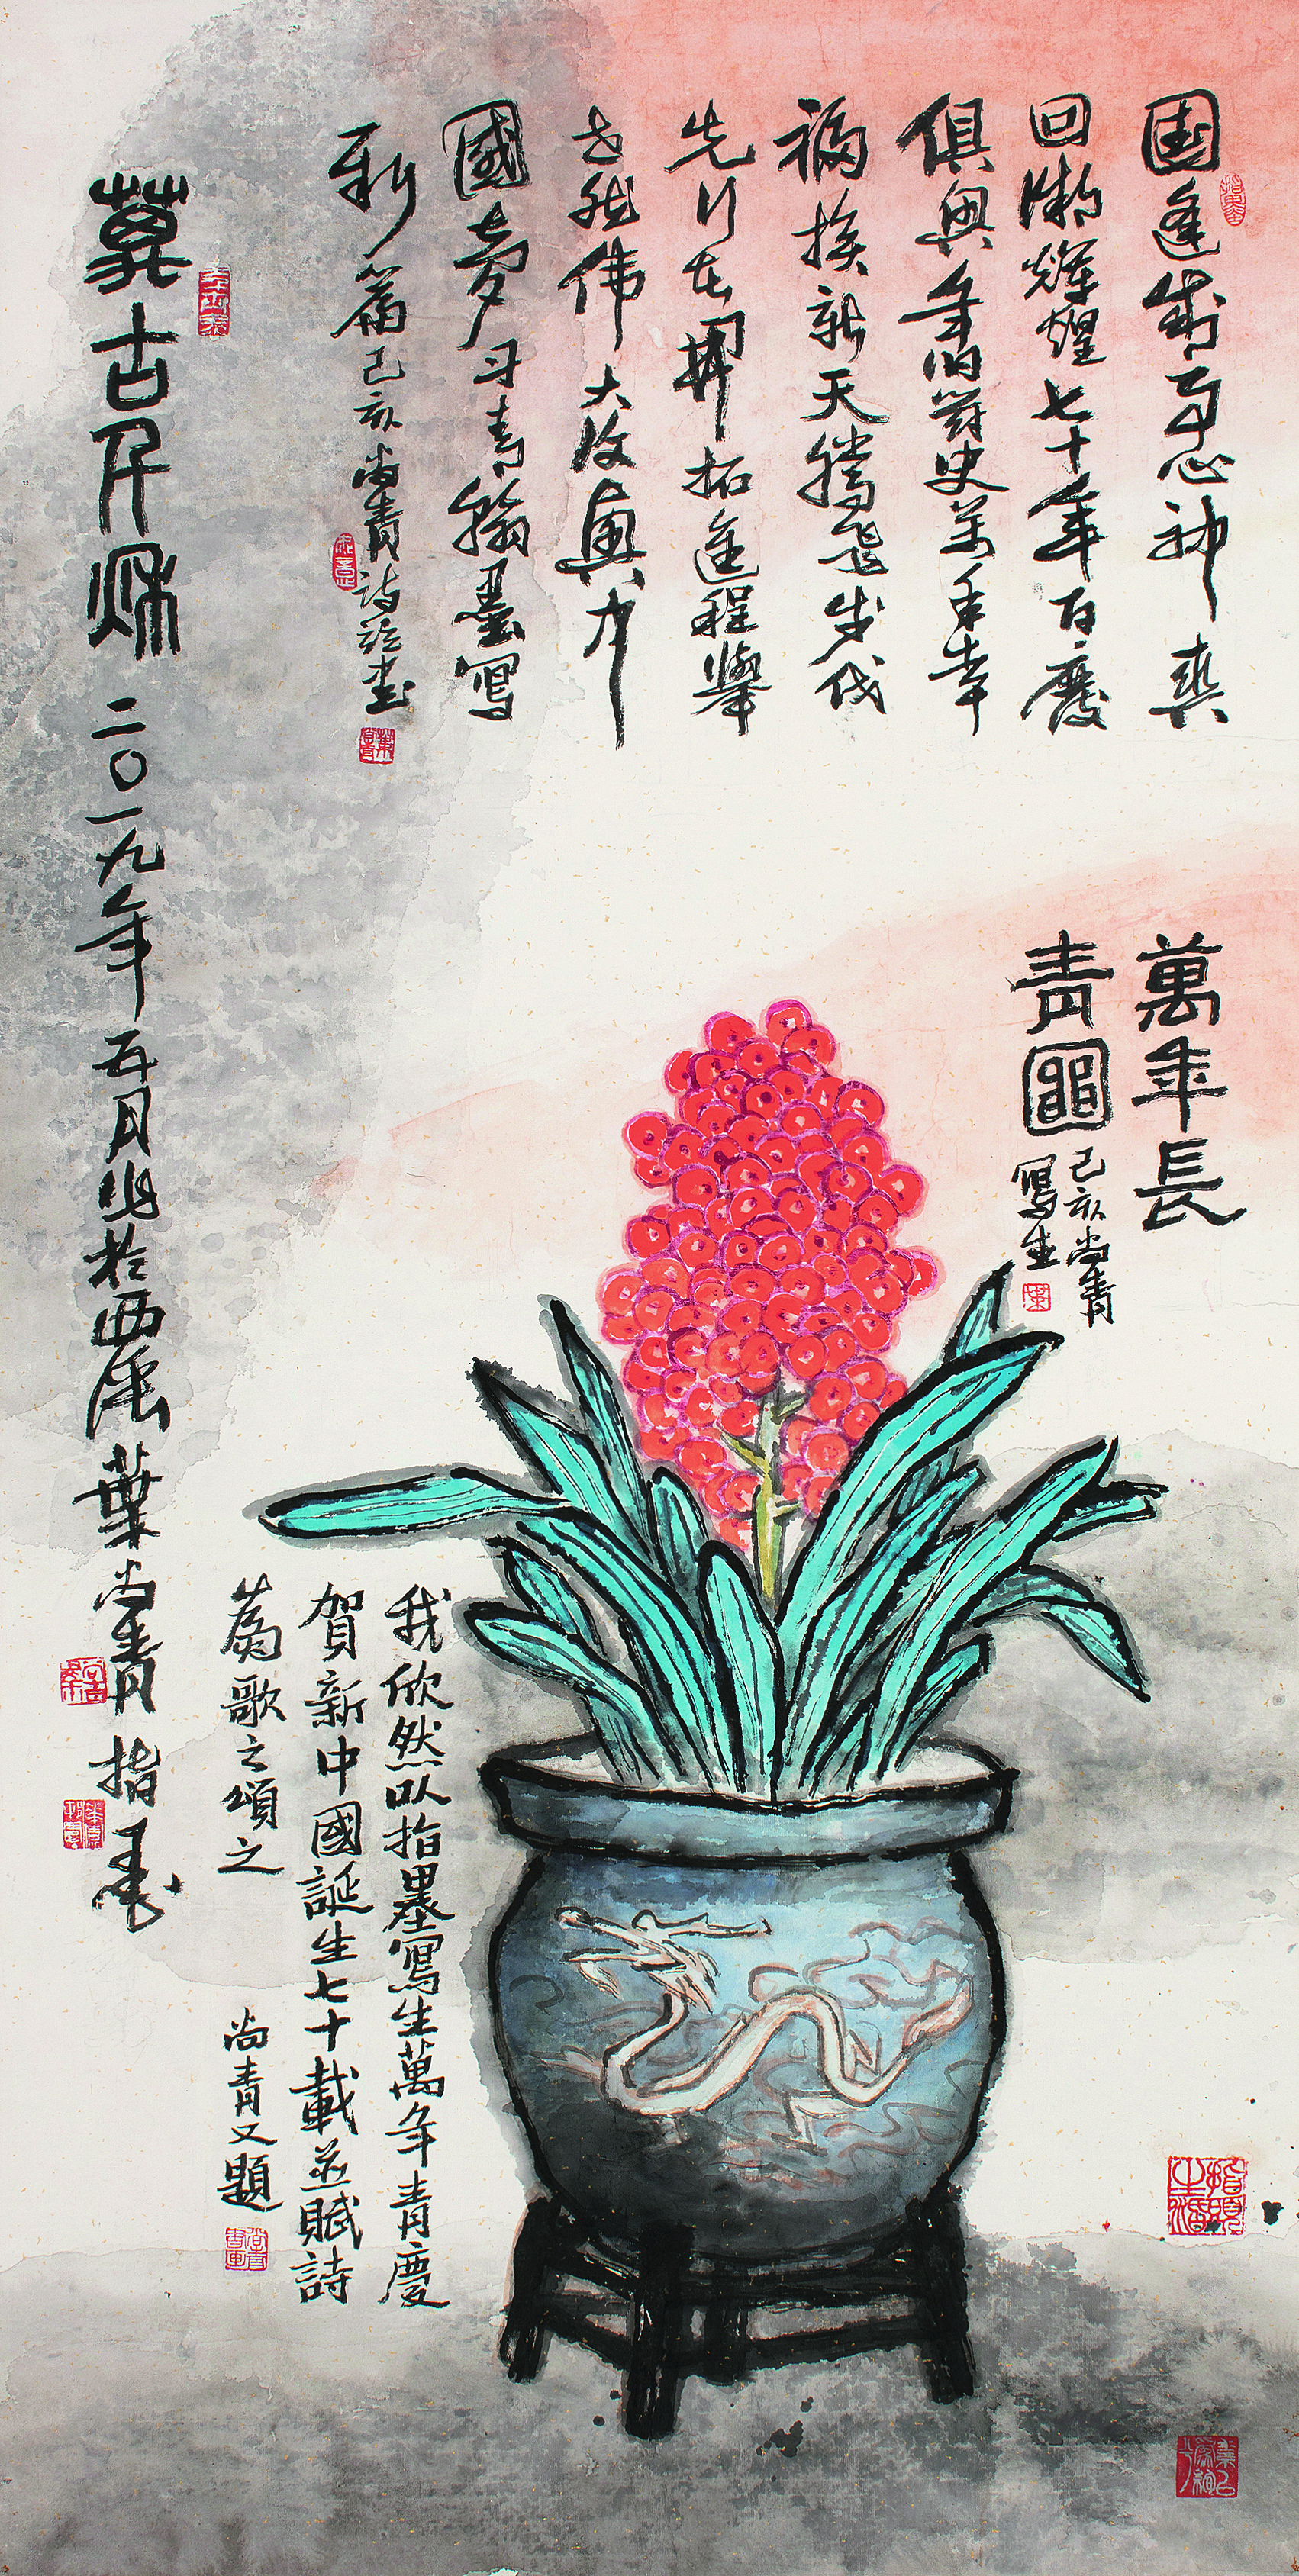 国逢盛事心神爽
回溯輝煌七十年百廢
俱興年史萬幸
福换新天騰飛步伐
先行在開拓進程舉
世然伟大復興中
國夢青翰墨寫
新篇己亥尚青詩并書
萬年長
青圖己亥尚青
寫生
我欣然以指墨寫生萬年青慶
賀新中國誕生七十載並賦詩
為歌之頌之 尚青又題
萬古千秋 二〇一九年五月於西葉尚青指墨